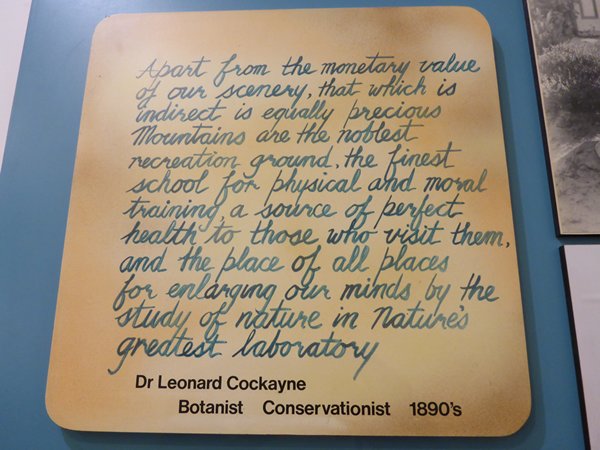 Apart from the monetary value
of our scenery, that which is
indirect is equally precious
Mountains are the noblest
recreation ground, the finest
school for physical and moral
training, a source of perfect
health to those who visit them,
and the place of all places
for enlarging our minds by the
study of nature in Nature's
greatest laboratory
Dr Leonard Cockayne
Botanist Conservationist 1890's